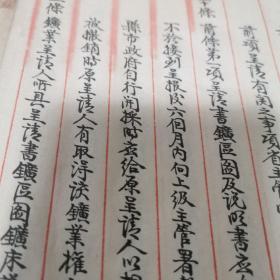 前項呈請有左列事項者
條 前條第一項呈請書鑛區圖及說明書
不於接到呈报後六個月內向上級主管署
縣市政府自行開採時應給原呈請人以相
被撤銷時原呈請人有取得該鑛業權
條 鑛業呈請人所具呈請書鑛區圖鑛床